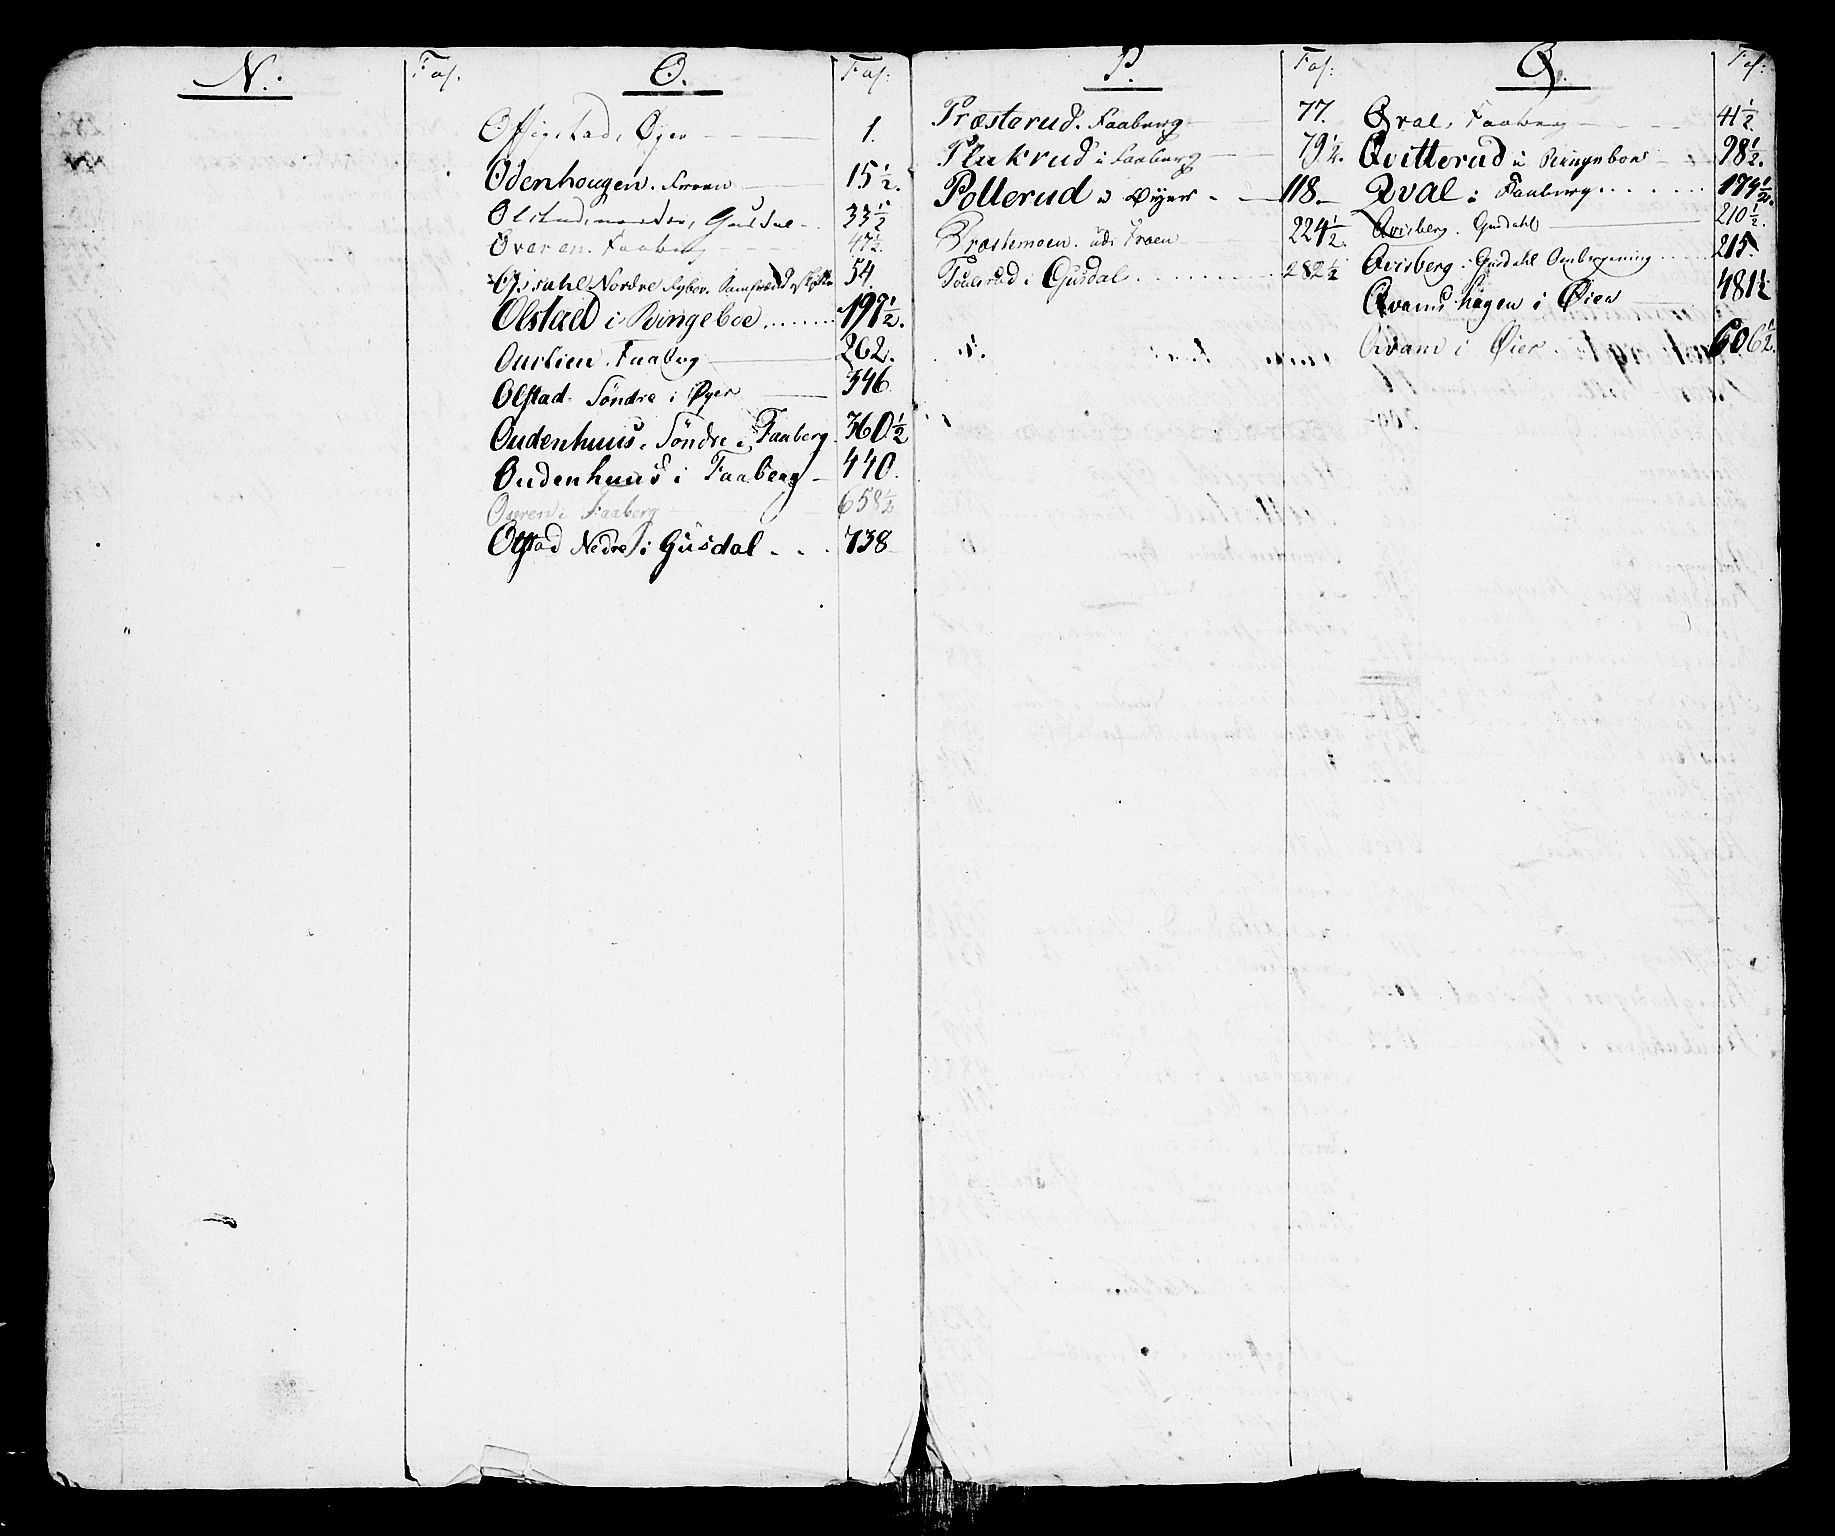 N: Fol.
O. Fol:
Offigstad, Øjer 1.
Odenhougen. Froen 15 1/2.
Olstad, Gusdal 33 1/2
Overen. Faaberg 47 1/2.
Nordre 54.
Olstad i Ringeboe 197 1/2.
Ourlien. Faaberg 262.
Olstad Söndre i Øyer 346
Oudenhuus. Söndre i Faaberg 360 1/2
Oudenhuus i Faaberg 440.
Overen i Faaberg 658 1/2
Olstad Nedre i Gusdal 738
P. Fol:
Præsterud. Faaberg 77.
Plukrud i Faaberg 79 1/2.
Polterud i Øyer 118.
Præstemoen. udi Froen 224 1/2.
Poulsrud i Gusdal 282 1/2
Q. Fol:
Qval, Faaberg 41 1/2.
Qvitterud i Ringeboe 98 1/2.
Qval i Faaberg 174 1/2.
Qvisberg. Gusdahl 210 1/2.
Qvisberg. Gusdahl Ombygning 215.
Qvamshagen i Øier 481 1/2
Qvam i Øier 606 1/2.